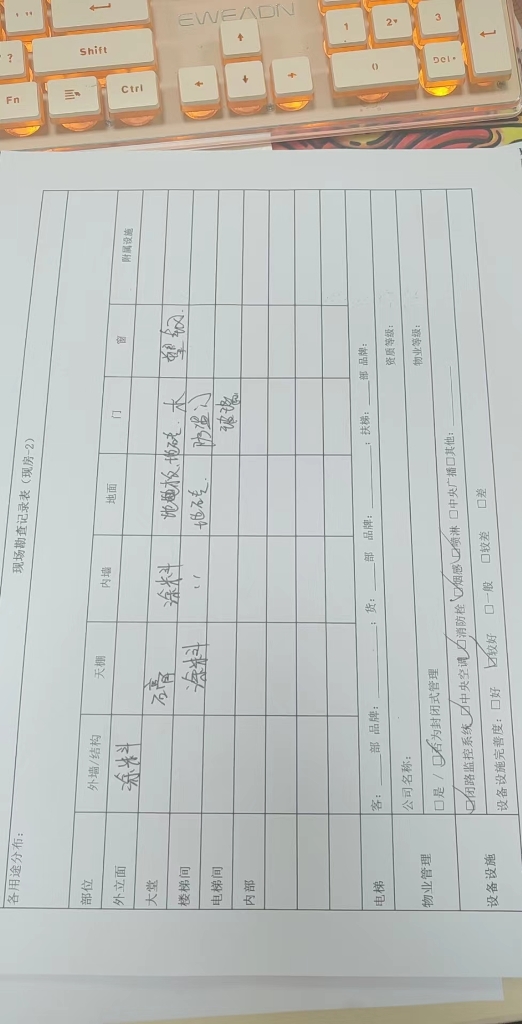 EWEADN
Shift
Fn
Ctrl
1
2
3
0
Del
现场勘查记录表（现房-2）
各用途分布：
部位 外墙/结构 天棚 内墙 地面 门 窗 附属设施
外立面 涂料
大堂 石膏 涂料 地砖 木 塑钢
楼梯间 涂料 〃 地砖 防盗门
电梯间 玻璃
内部
电梯 客：部 品牌：；货：部 品牌：；扶梯：部 品牌：
物业管理 公司名称： 资质等级：
□是 / □否为封闭式管理 物业等级：
设备设施 □闭路监控系统 □中央空调 □消防栓 □烟感 □喷淋 □中央广播 □其他：
设备设施完善度：□好 □较好 □一般 □较差 □差